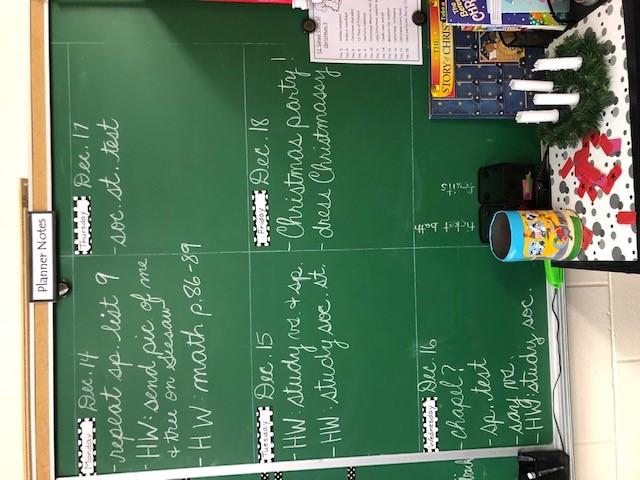 Planner Notes
Monday Dec. 14
- repeat sp. list 9
- HW: send pic of me
& tree on seesaw
- HW: math p. 86-89
Tuesday Dec. 15
- HW: study mv. & sp.
- HW: study soc. st.
Wednesday Dec 16
chapel?
sp. test
- say mv.
- HW: study soc.
Thursday Dec. 17
- soc. st. test
Friday Dec. 18
- Christmas party!
- dress Christmassy
ticket bath
fruits
THE
STORY of CHRIS